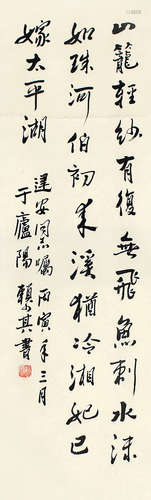 山籠輕紗有復無飛魚刺水沫
如珠河伯初來溪猶冷湘妃已
嫁太平湖
達安同志囑 丙寅年三月
于廬陽 賴少其書